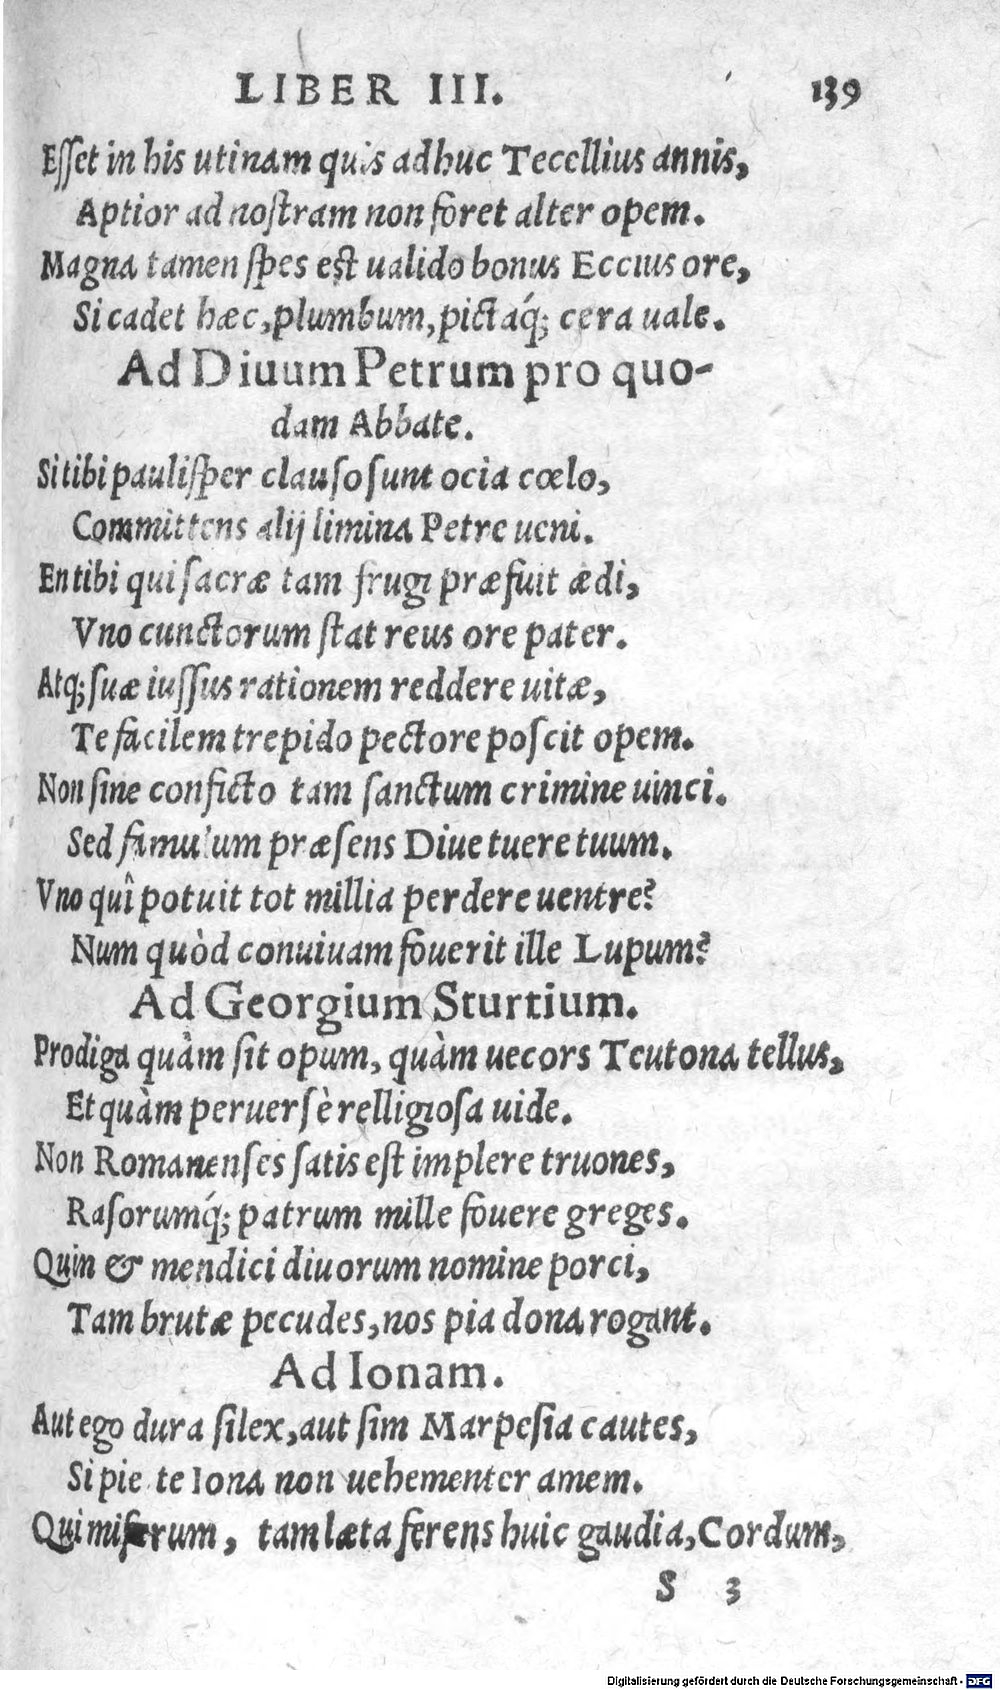 LIBER III. 139
Esset in his utinam quis adhuc Tecellius annis,
Aptior ad nostram non foret alter opem.
Magna tamen spes est ualido bonus Eccius ore,
Si cadet hæc, plumbum, pictaq́; cera uale.
Ad Diuum Petrum pro quo-
dam Abbate.
Si tibi paulisper clauso sunt ocia cœlo,
Committens alij limina Petre ueni.
En tibi qui sacræ tam frugi præfuit ædi,
Vno cunctorum stat reus ore pater.
Atq; suæ iussus rationem reddere uitæ,
Te facilem trepido pectore poscit opem.
Non sine conficto tam sanctum crimine uinci.
Sed famulum præsens Diue tuere tuum.
Vno quî potuit tot millia perdere uentre?
Num quòd conuiuam fouerit ille Lupum?
Ad Georgium Sturtium.
Prodiga quàm sit opum, quàm uecors Teutona tellus,
Et quàm peruersè relligiosa uide.
Non Romanenses satis est implere truones,
Rasorumq́; patrum mille fouere greges.
Quin & mendici diuorum nomine porci,
Tam brutæ pecudes, nos pia dona rogant.
Ad Ionam.
Aut ego dura silex, aut sim Marpesia cautes,
Si pie te Iona non uehementer amem.
Qui miserum, tam læta ferens huic gaudia, Cordum,
S 3
Digitalisierung gefördert durch die Deutsche Forschungsgemeinschaft - DFG